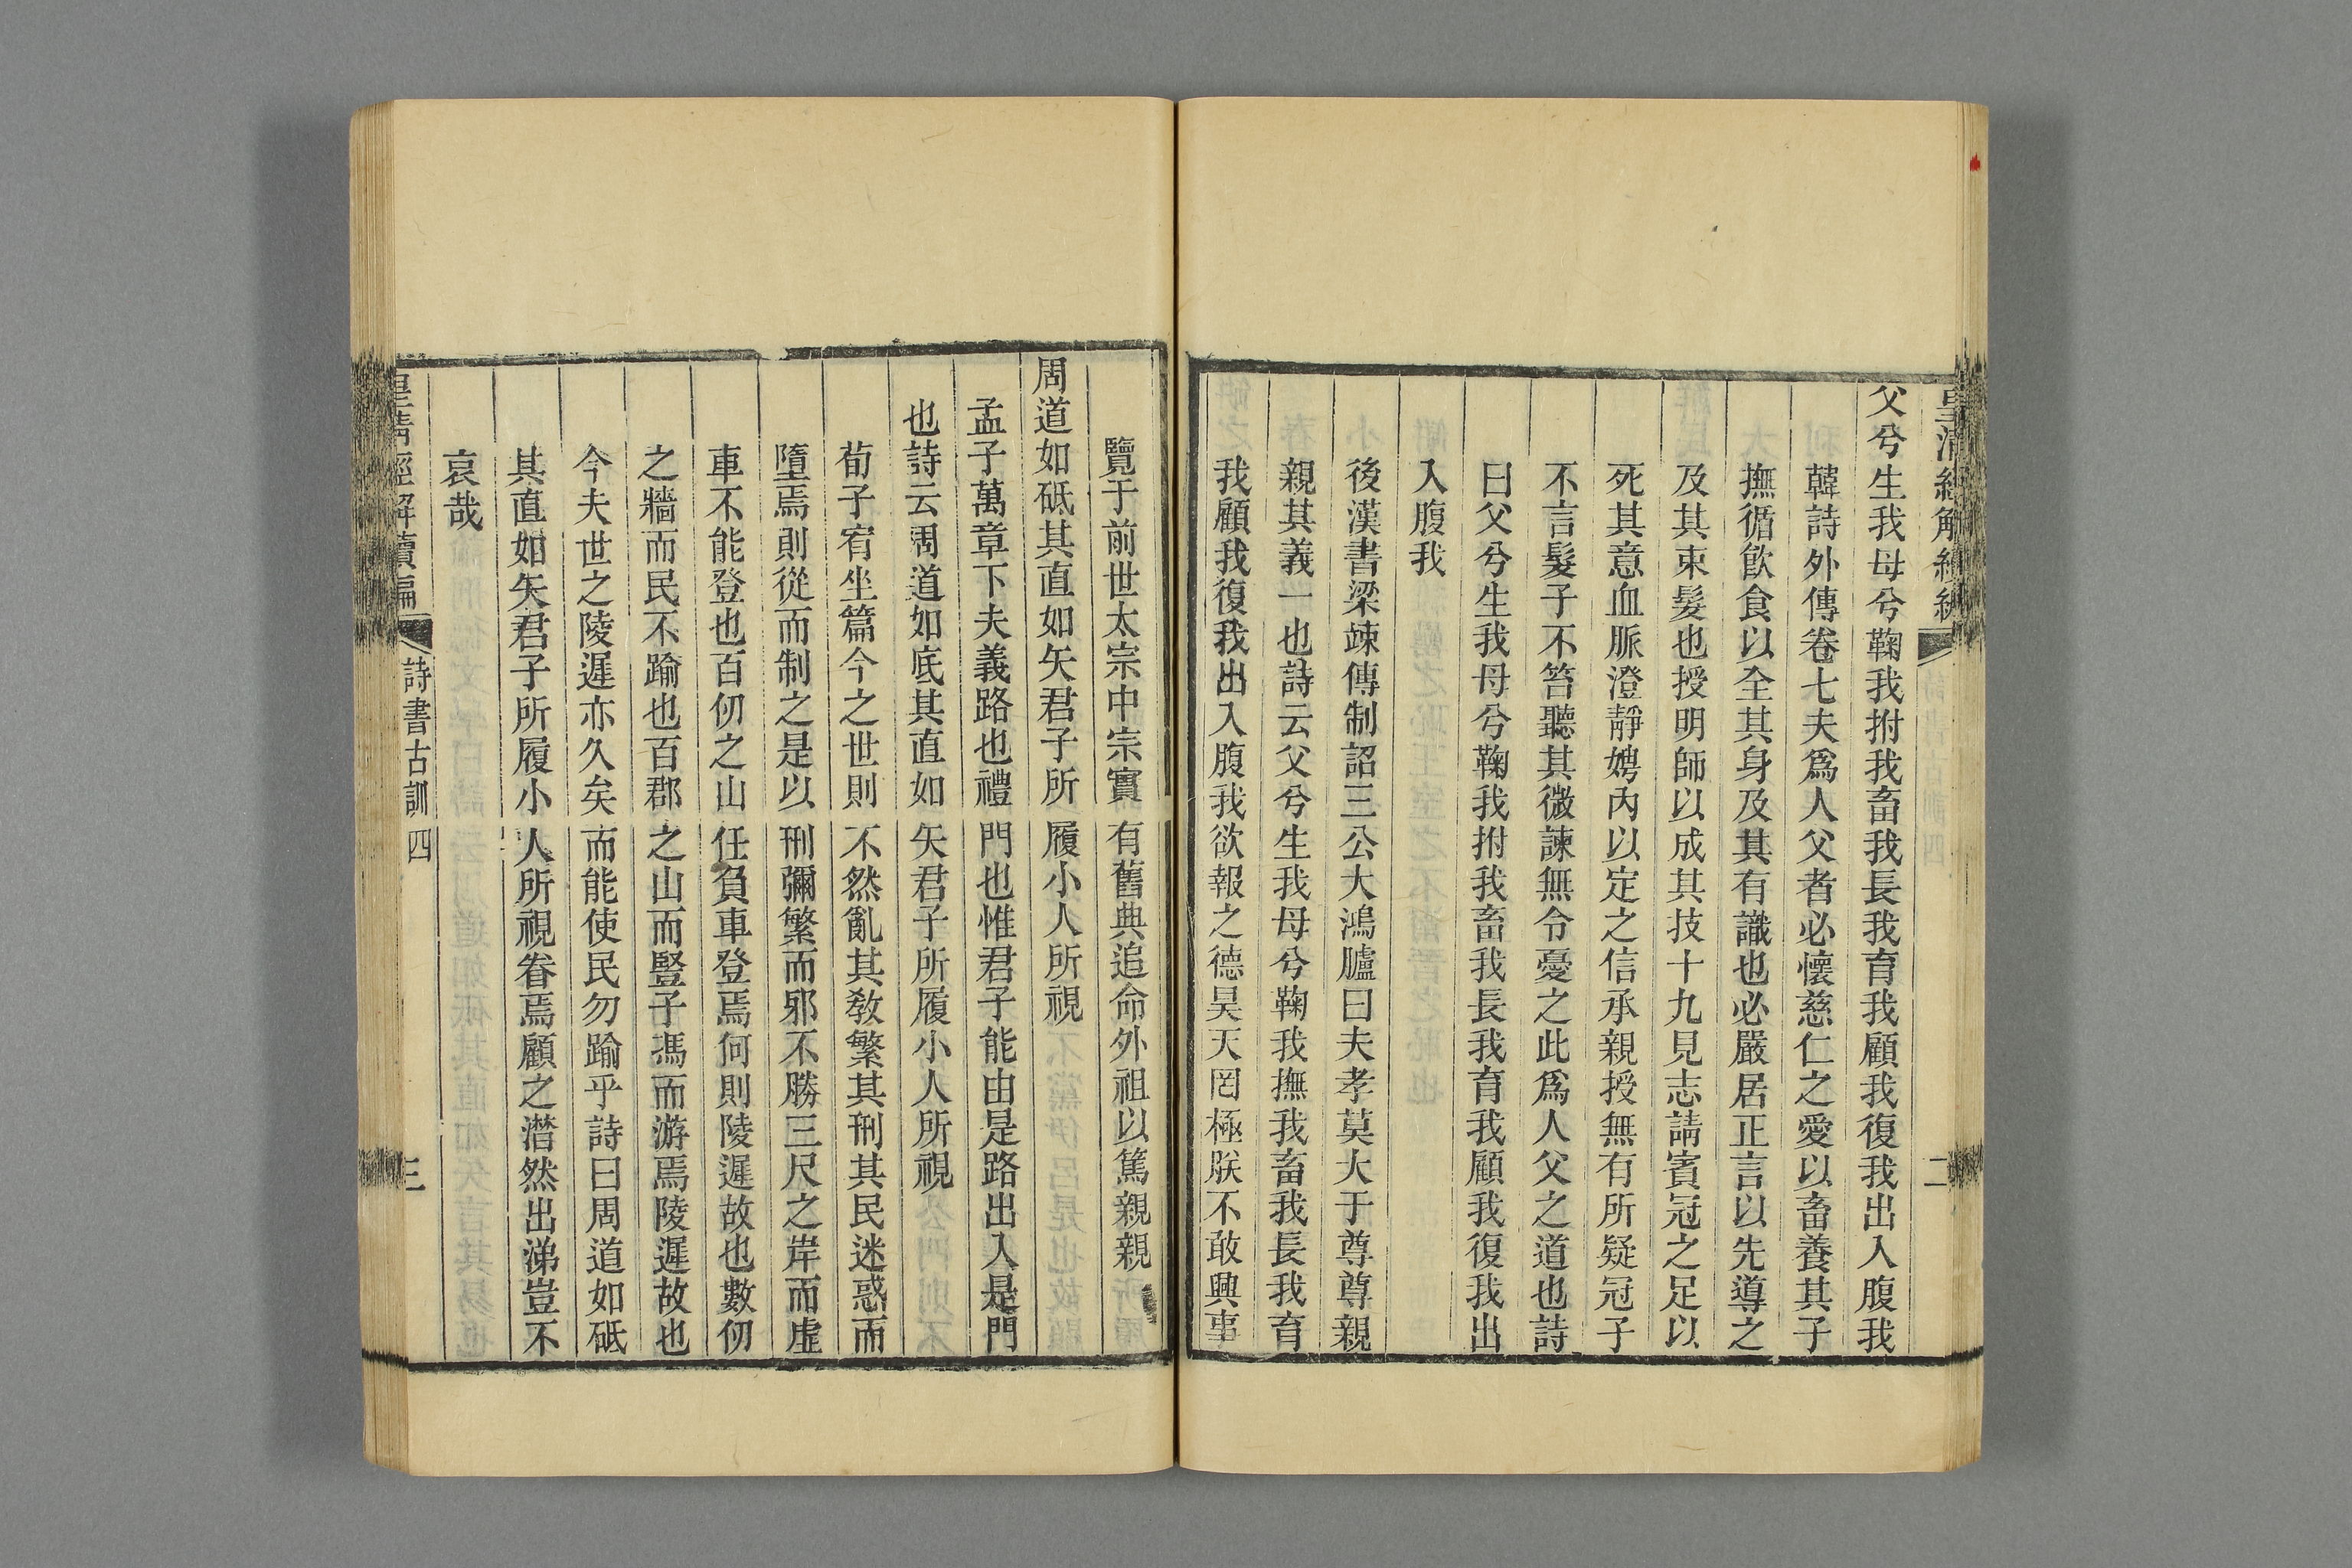 皇清經解續編
二
父兮生我母兮鞠我拊我畜我長我育我顧我復我出入腹我
韓詩外傳卷七夫爲人父者必懷慈仁之愛以畜養其子
撫循飮食以全其身及其有識也必嚴居正言以先導之
及其束髮也授明師以成其技十九見志請賓冠之足以
死其意血脈澄靜娉內以定之信承親授無有所疑冠子
不言髮子不笞聽其微諫無令憂之此爲人父之道也詩
曰父兮生我母兮鞠我拊我畜我長我育我顧我復我出
入腹我
後漢書梁竦傳制詔三公大鴻臚曰夫孝莫大于尊尊親
親其義一也詩云父兮生我母兮鞠我撫我畜我長我育
我顧我復我出入腹我欲報之德昊天罔極朕不敢興事
覽于前世太宗中宗實有舊典追命外祖以篤親親
周道如砥其直如矢君子所履小人所視
孟子萬章下夫義路也禮門也惟君子能由是路出入是門
也詩云周道如底其直如矢君子所履小人所視
荀子宥坐篇今之世則不然亂其敎繁其刑其民迷惑而
墮焉則從而制之是以刑彌繁而邪不勝三尺之岸而虛
車不能登也百仞之山任負車登焉何則陵遲故也數仞
之牆而民不踰也百郡之山而豎子馮而游焉陵遲故也
今夫世之陵遲亦久矣而能使民勿踰乎詩曰周道如砥
其直如矢君子所履小人所視眷焉顧之潸然出涕豈不
哀哉
皇清經解續編
詩書古訓四
三